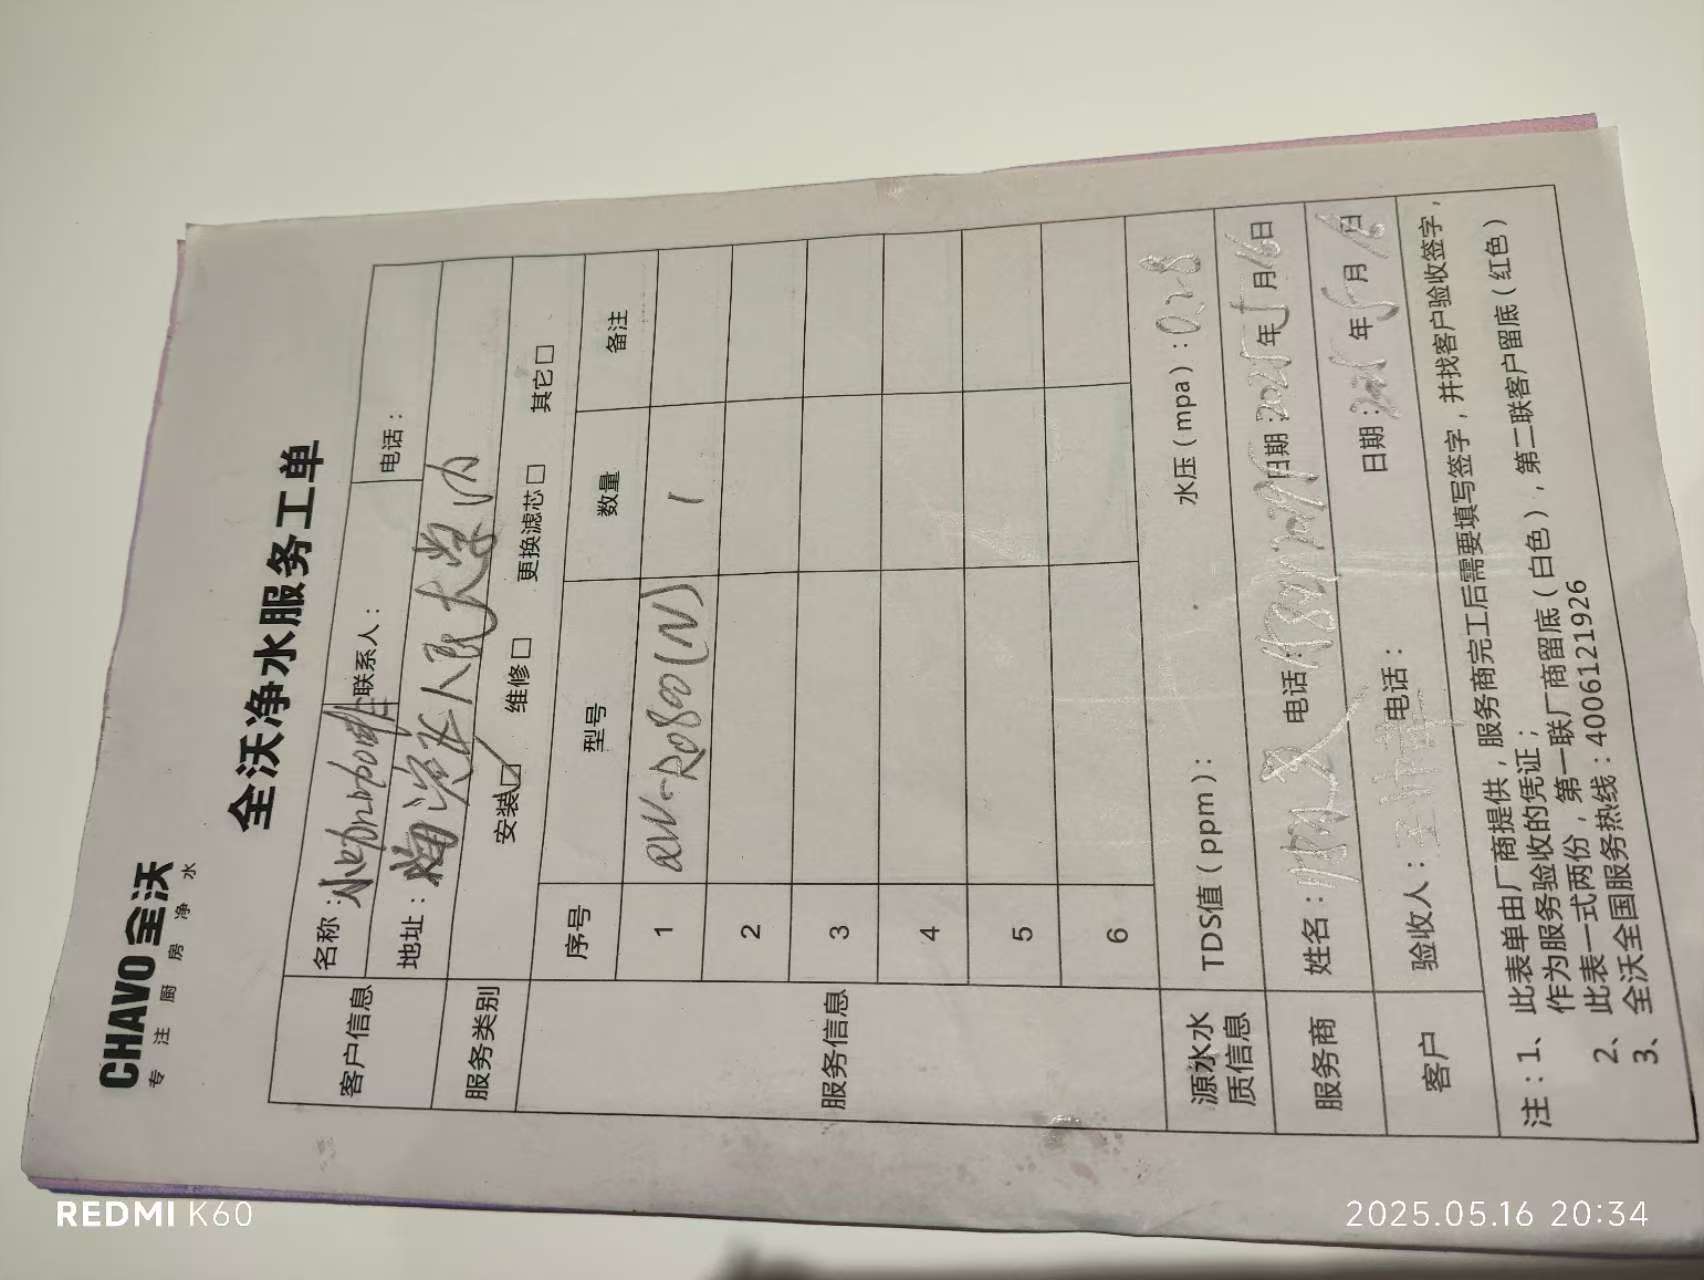 CHAVO 全沃
专注厨房净水
全沃净水服务工单
客户信息
名称： 联系人： 电话：
地址： 人民大学内
服务类别 安装☑ 维修□ 更换滤芯□ 其它□
服务信息
序号 型号 数量 备注
1 QW-RO800(N) 1
2
3
4
5
6
源水水质信息 TDS值（ppm）： 水压（mpa）：0.28
服务商 姓名： 电话： 日期：2025年5月16日
客户 验收人： 电话： 日期：2025年5月16日
注：1、此表单由厂商提供，服务商完工后需要填写签字，并找客户验收签字，
作为服务验收的凭证；
2、此表一式两份，第一联厂商留底（白色），第二联客户留底（红色）
3、全沃全国服务热线：4006121926
REDMI K60
2025.05.16 20:34